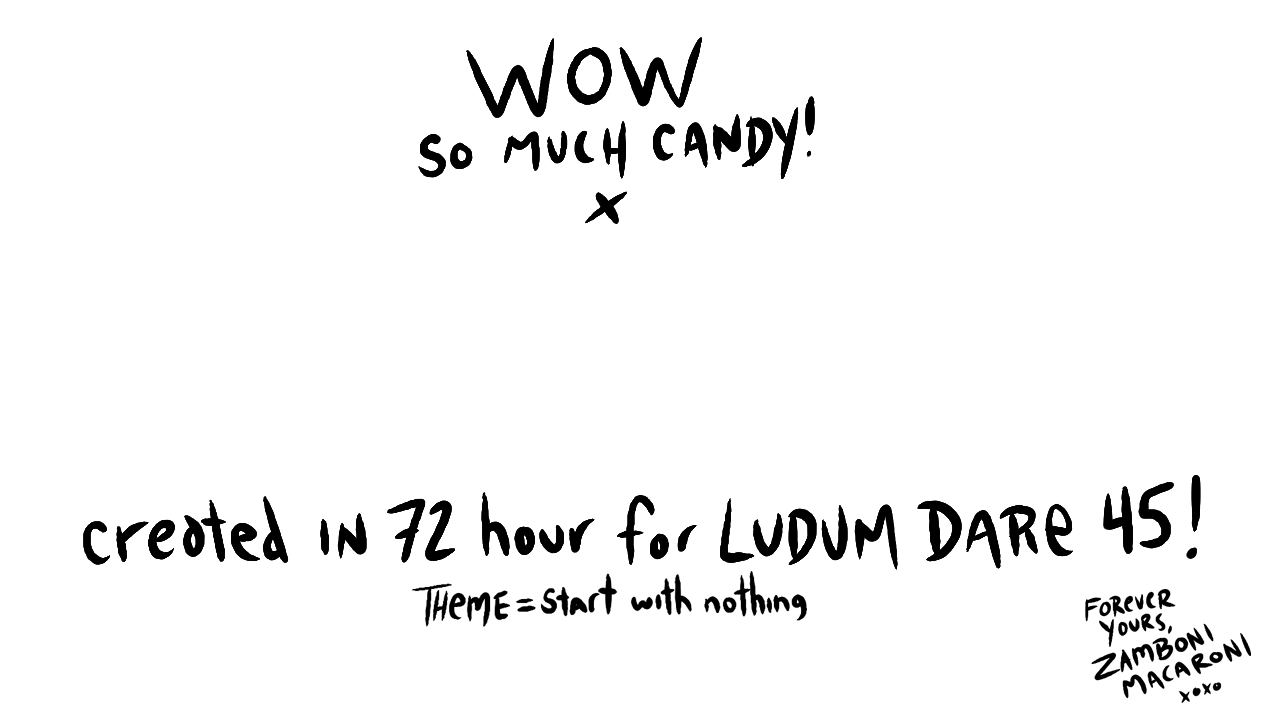 WOW
SO MUCH CANDY!
x
created IN 72 hour for LUDUM DARE 45!
THEME = Start with nothing
FOREVER
YOURS,
ZAMBONI
MACARONI
xoxo